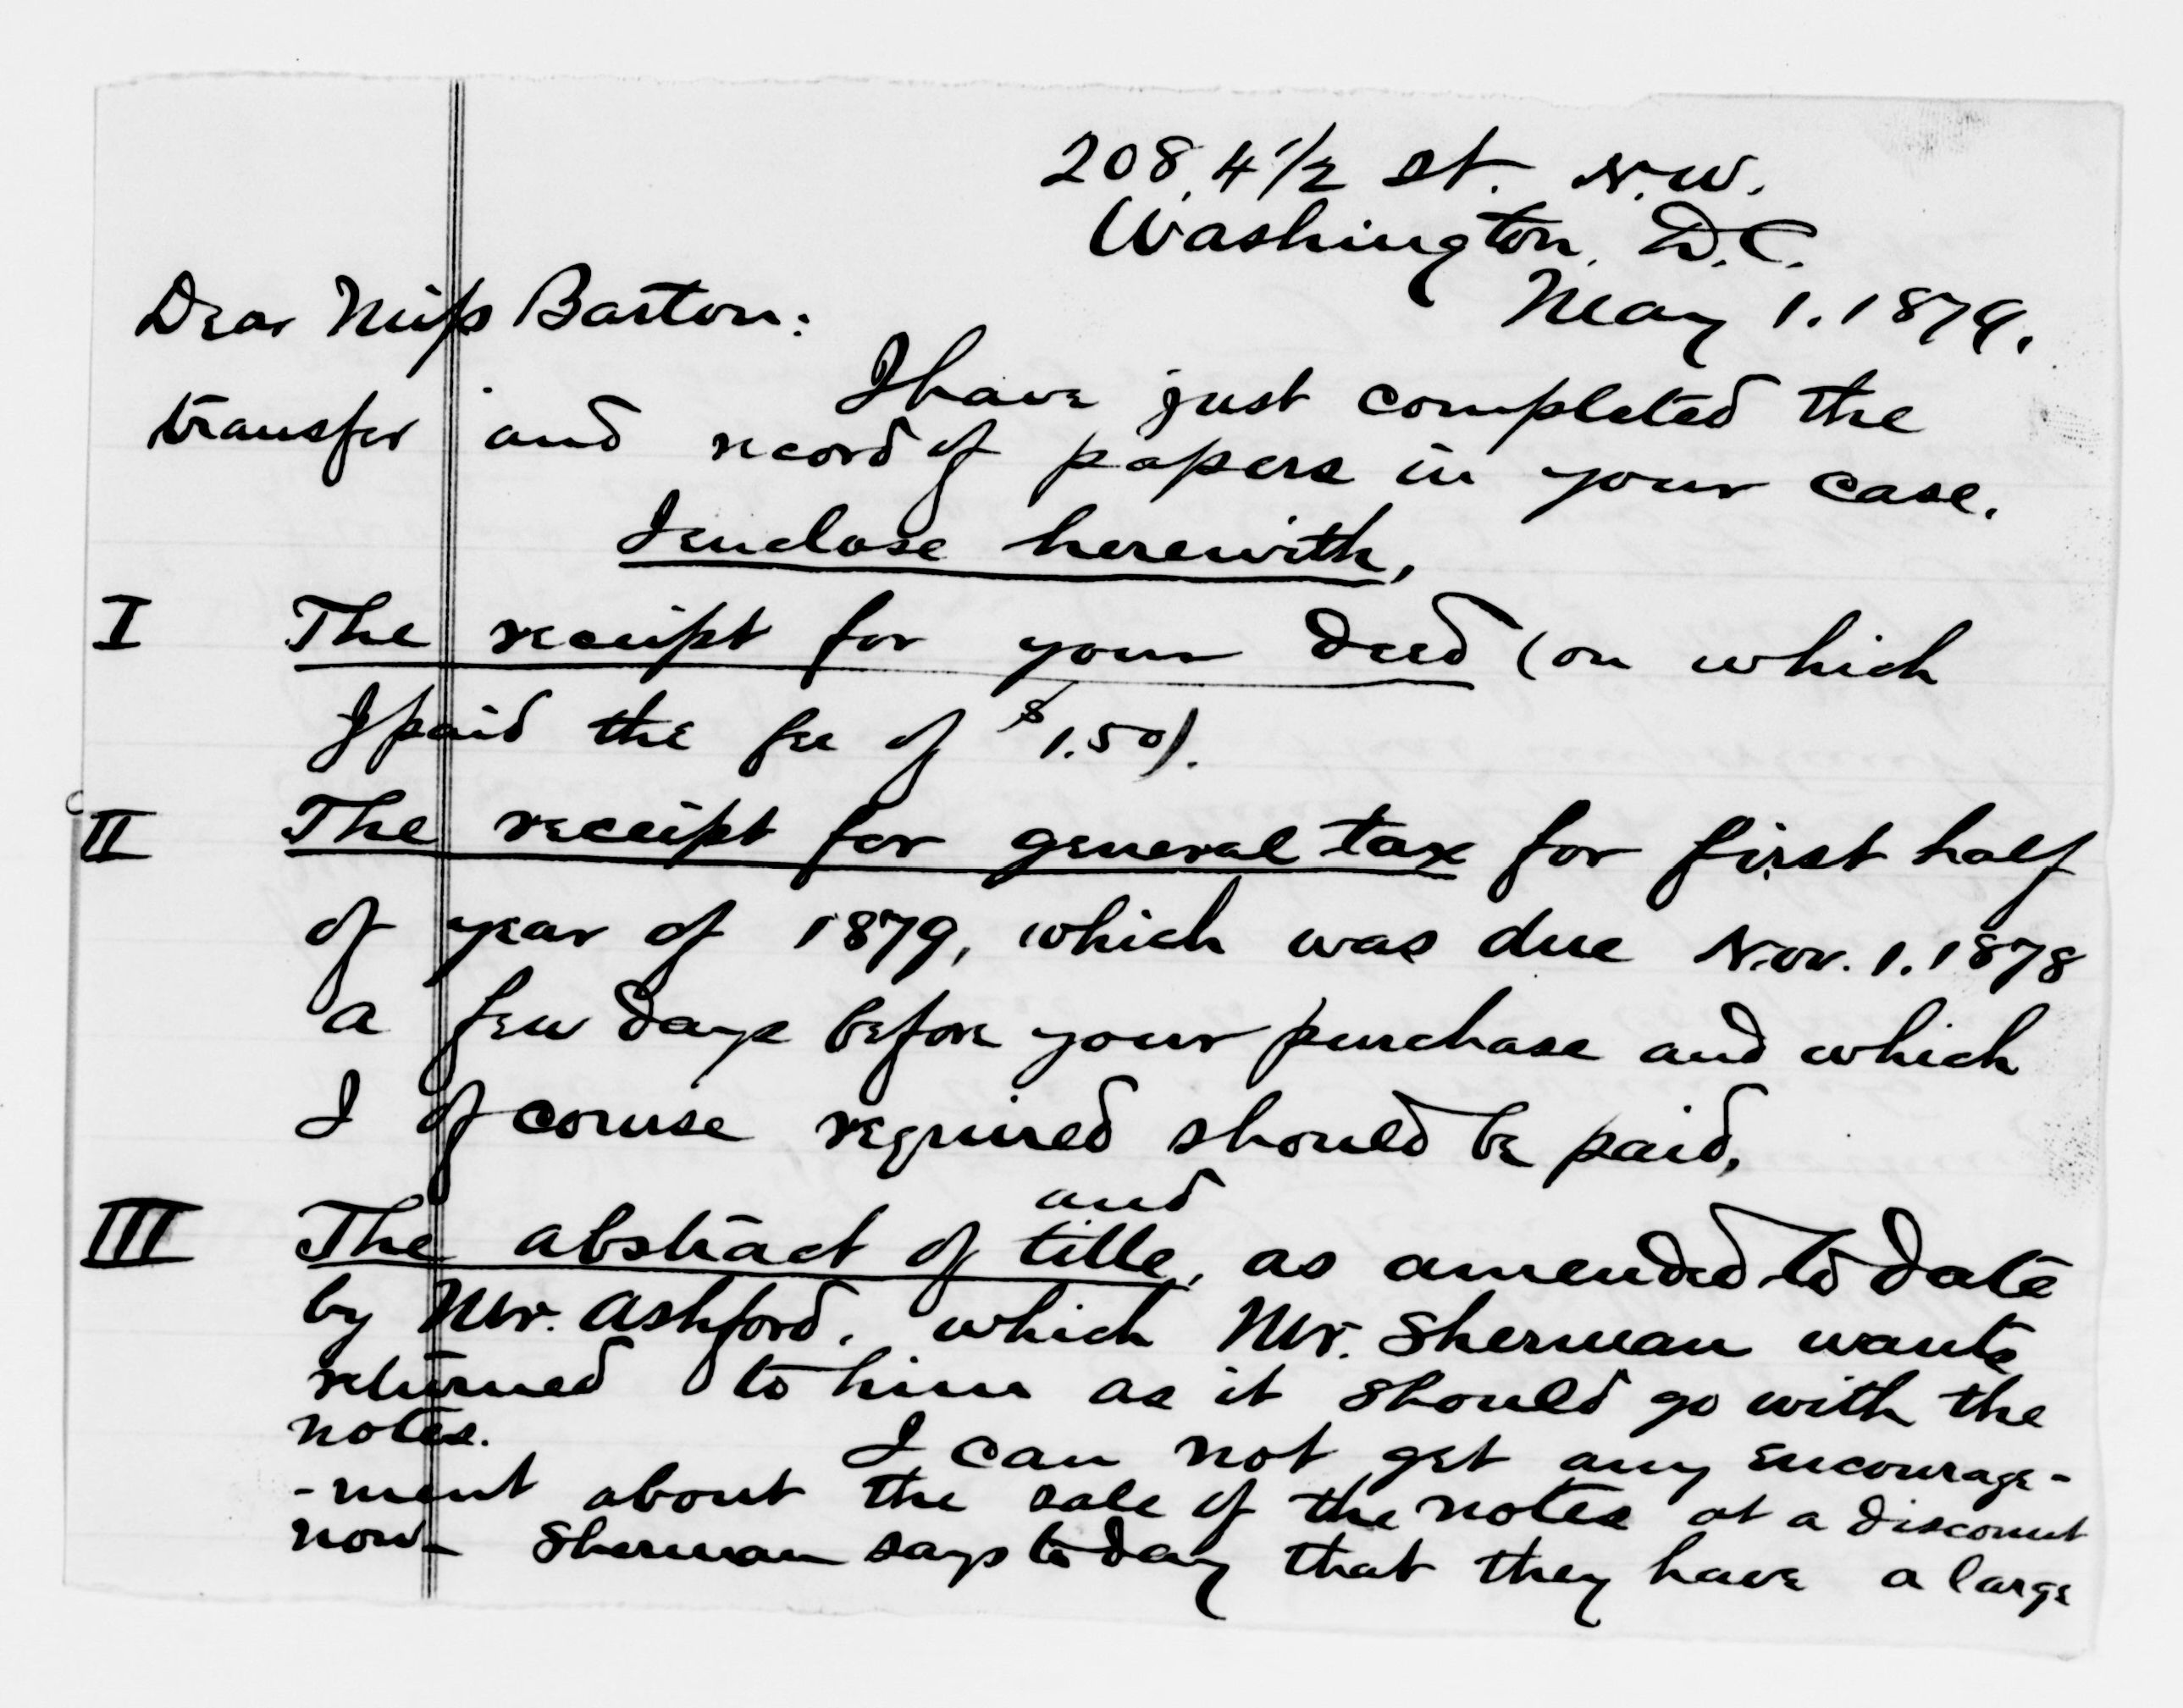 208, 4 1/2 st. N.W.
Washington, D.C.
May 1. 1879.
Dear Miss Barton:
I have just completed the
transfer and record of papers in your case.
I enclose herewith,
I The receipt for your deed (on which
I paid the fee of $1.50).
II The receipt for general tax for first half
of year of 1879, which was due Nov. 1. 1878
a few days before your purchase and which
I of course required should be paid,
and
III The abstract of title, as amended to date
by Mr. Ashford. which Mr. Sherman wants
returned to him as it should go with the
notes.
I can not get any encourage-
-ment about the sale of the notes at a discount
now - Sherman says to day that they have a large